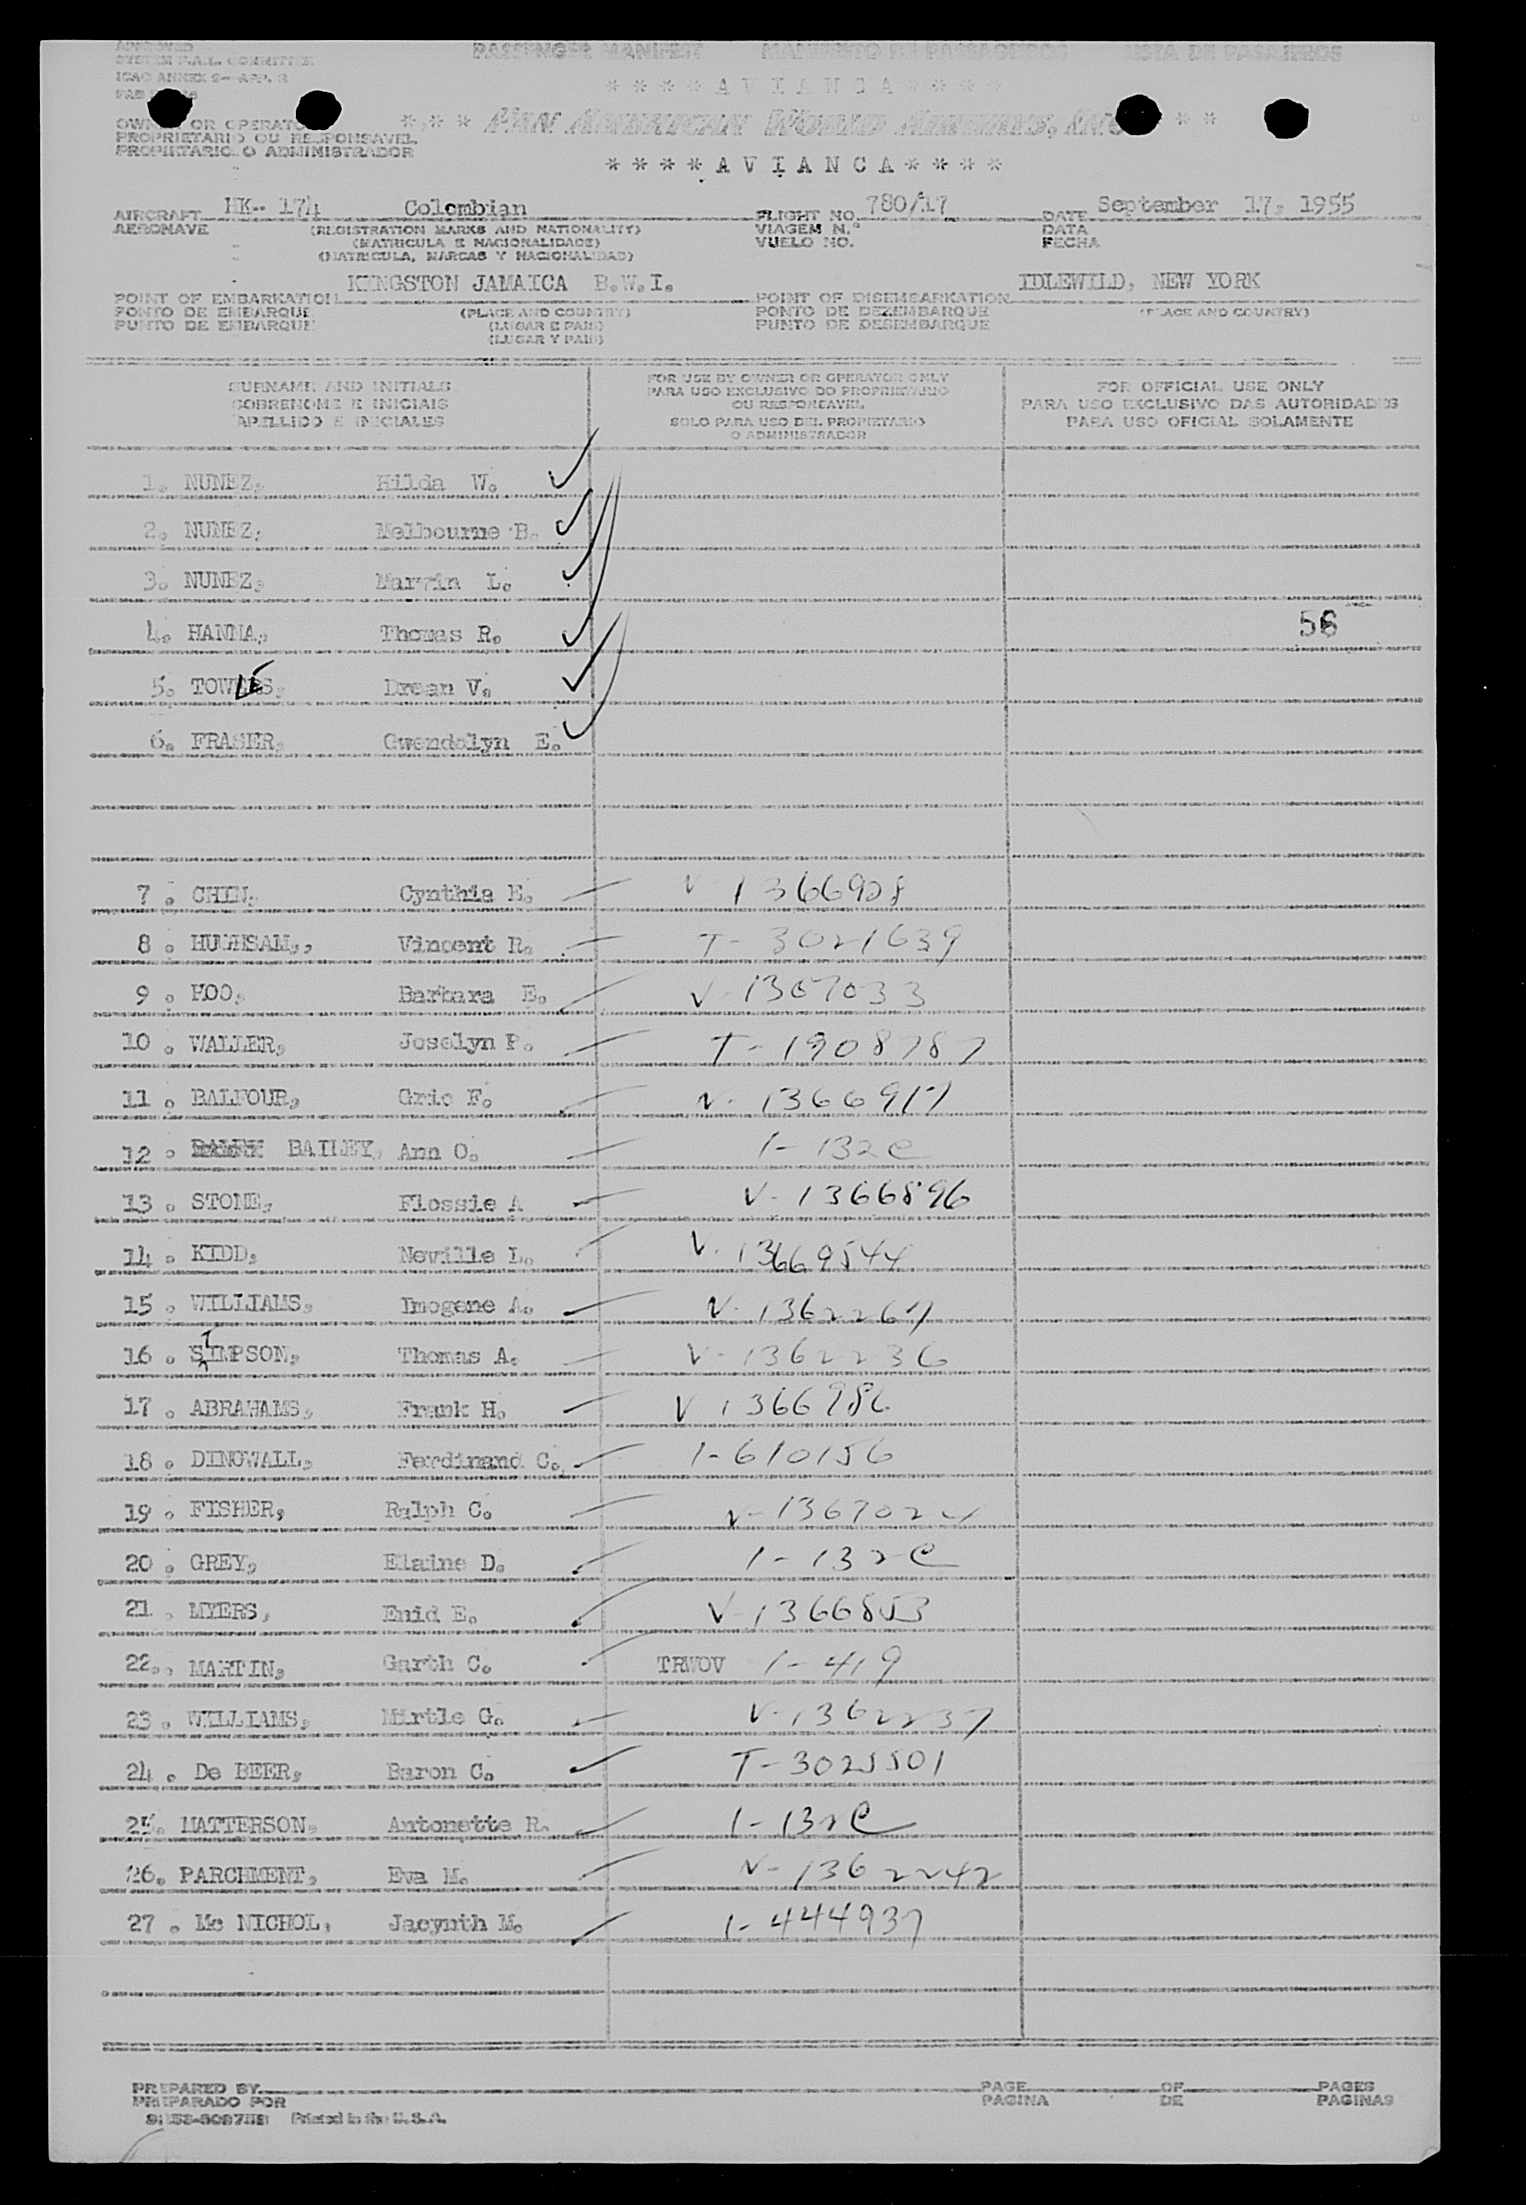 APPROVED
SYSTEM F.A.L. COMMITTEE
ICAO ANNEX 9— APP. 3
PASSENGER MANIFEST MANIFESTO DE PASSAGEIROS LISTA DE PASAJEROS
* * * * A V I A N C A * * * *
OWNER OR OPERATOR
PROPRIETARIO OU RESPONSAVEL
PROPIETARIO O ADMINISTRADOR
* * * PAN AMERICAN WORLD AIRWAYS, INC * *
* * * * A V I A N C A * * * *
AIRCRAFT HK-- 174 Colombian FLIGHT NO. 780/17 DATE September 17, 1955
AERONAVE (REGISTRATION MARKS AND NATIONALITY) VIAGEM N.º DATA
(MATRICULA E NACIONALIDADE) VUELO NO. FECHA
(MATRICULA, MARCAS Y NACIONALIDAD)
POINT OF EMBARKATION KINGSTON JAMAICA B.W.I. POINT OF DISEMBARKATION IDLEWILD, NEW YORK
PONTO DE EMBARQUE (PLACE AND COUNTRY) PONTO DE DEZEMBARQUE (PLACE AND COUNTRY)
PUNTO DE EMBARQUE (LUGAR E PAIS) PUNTO DE DESEMBARQUE
(LUGAR Y PAIS)
SURNAME AND INITIALS
SOBRENOME E INICIAIS
APELLIDO E INICIALES
FOR USE BY OWNER OR OPERATOR ONLY
PARA USO EXCLUSIVO DO PROPRIETARIO
OU RESPONSAVEL
SOLO PARA USO DEL PROPIETARIO
O ADMINISTRADOR
FOR OFFICIAL USE ONLY
PARA USO EXCLUSIVO DAS AUTORIDADES
PARA USO OFICIAL SOLAMENTE
1. NUNEZ, Hilda W. ✓
2. NUNEZ, Melbourne B. ✓
3. NUNEZ, Marvin L. ✓
4. HANNA, Thomas R. ✓ 56
5. Drean V. ✓
6. FRASER, Gwendolyn E. ✓
7. CHIN, Cynthia E. V 1366928
8. Vincent R. T- 3021639
9. HOO, Barbara E. V-1367033
10. WALLER, Joselyn P. T-1908787
11. BALFOUR, Gric F. V-1366917
12. BAILEY, Ann O. 1-132C
13. STONE, Flossie A V-1366896
14. KIDD, Neville L. V-13669544
15. WILLIAMS, Imogene A. V-1362267
16. SIMPSON, Thomas A. V-1362236
17. ABRAHAMS, Frank H. V 1366986
18. DINGWALL, Ferdinand C. 1-610156
19. FISHER, Ralph C. V-1367024
20. GREY, Elaine D. 1-132C
21. MYERS, Enid E. V-1366853
22. MARTIN, Garth C. TRWOV 1-419
23. WILLIAMS, Mirtle G. V-1362237
24. De BEER, Baron C. T-3025501
25. MATTERSON, Antonette R. 1-132C
26. PARCHMENT, Eva M. V-1362242
27. Mc NICHOL, Jacynth M. 1-444937
PREPARED BY PAGE OF PAGES
PREPARADO POR PAGINA DE PAGINAS
Printed in the U.S.A.